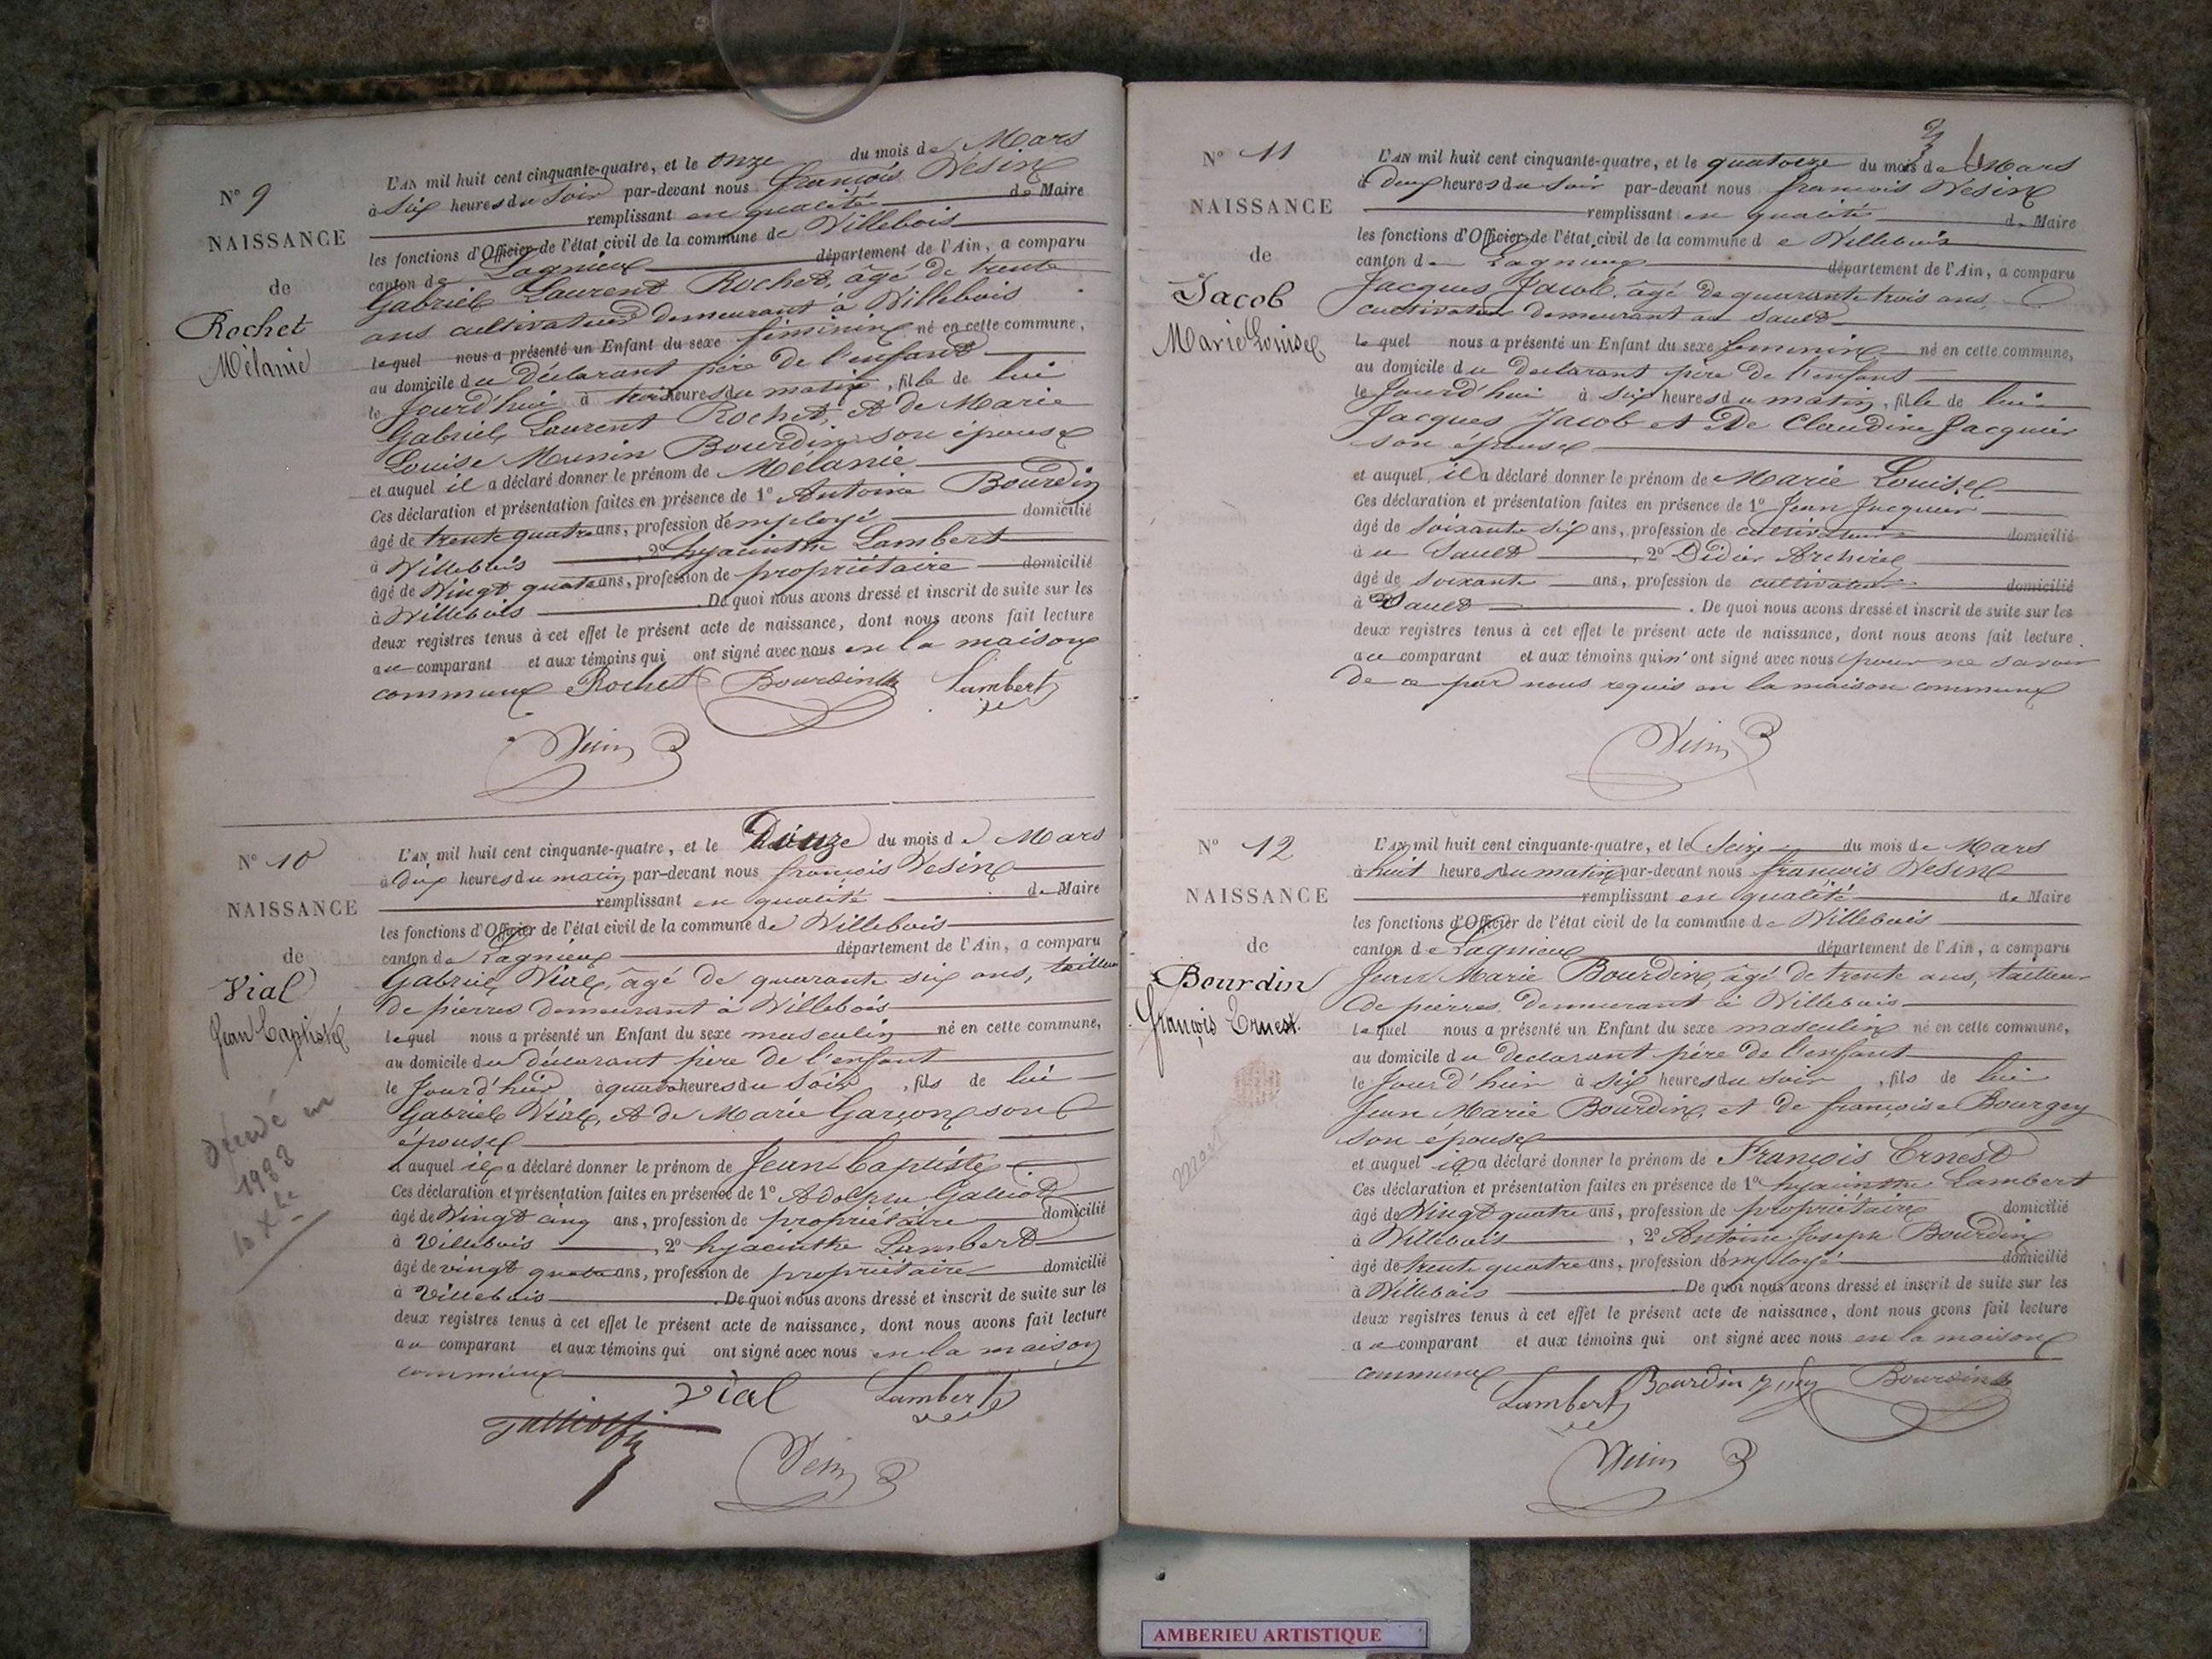 N° 9
NAISSANCE
de
Rochet
Mélanie
L'AN mil huit cent cinquante-quatre, et le onze du mois de Mars
à Six heures du Soir par-devant nous françois Vesin
remplissant en qualité de Maire
les fonctions d'Officier de l'état civil de la commune de Villebois
canton de Lagnieux département de l'Ain, a comparu
Gabriel Laurent Rochet, âgé de trente
ans cultivateur demeurant à Villebois
lequel nous a présenté un Enfant du sexe féminin né en cette commune,
au domicile du déclarant père de l'enfant
le Jourd'hui à trois heures du matin, fille de lui
Gabriel Laurent Rochet, et de Marie
Louise Munin Bourdin son épouse
et auquel il a déclaré donner le prénom de Mélanie
Ces déclaration et présentation faites en présence de 1° Antoine Bourdin
âgé de trente quatre ans, profession d'employé domicilié
à Villebois 2° hyacinthe Lambert
âgé de Vingt quatre ans, profession de propriétaire domicilié
à Villebois. De quoi nous avons dressé et inscrit de suite sur les
deux registres tenus à cet effet le présent acte de naissance, dont nous avons fait lecture
au comparant et aux témoins qui ont signé avec nous en la maison
commune Rochet Bourdin Lambert
Vesin
N° 10
NAISSANCE
de
Vial
Jean Baptiste
décédé en
1933
10 Xbre
L'AN mil huit cent cinquante-quatre, et le Douze du mois de Mars
à dix heures du matin par-devant nous françois Vesin
remplissant en qualité de Maire
les fonctions d'Officier de l'état civil de la commune de Villebois
canton de Lagnieux département de l'Ain, a comparu
Gabriel Vial, âgé de quarante six ans, tailleur
de pierres demeurant à Villebois
lequel nous a présenté un Enfant du sexe masculin né en cette commune,
au domicile du déclarant père de l'enfant
le Jourd'hier à quatre heures du Soir, fils de lui
Gabriel Vial, et de Marie Garçon son
épouse
et auquel il a déclaré donner le prénom de Jean Baptiste
Ces déclaration et présentation faites en présence de 1° Adolphe Galliot
âgé de Vingt cinq ans, profession de propriétaire domicilié
à Villebois, 2° hyacinthe Lambert
âgé de vingt quatre ans, profession de propriétaire domicilié
à Villebois. De quoi nous avons dressé et inscrit de suite sur les
deux registres tenus à cet effet le présent acte de naissance, dont nous avons fait lecture
au comparant et aux témoins qui ont signé avec nous en la maison
commune
Vial Lambert
Vesin
N° 11
NAISSANCE
de
Jacob
Marie Louise
L'AN mil huit cent cinquante-quatre, et le quatorze du mois de Mars
à Deux heures du Soir par-devant nous françois Vesin
remplissant en qualité de Maire
les fonctions d'Officier de l'état civil de la commune de Villebois
canton de Lagnieux département de l'Ain, a comparu
Jacques Jacob, âgé de quarante trois ans,
cultivateur demeurant au Sault
lequel nous a présenté un Enfant du sexe féminin né en cette commune,
au domicile du déclarant père de l'enfant
le Jourd'hui à six heures du matin, fille de lui
Jacques Jacob et De Claudine Jacquier
son épouse
et auquel il a déclaré donner le prénom de Marie Louise
Ces déclaration et présentation faites en présence de 1° Jean Jacquier
âgé de Soixante six ans, profession de cultivateur domicilié
à u Sault, 2° Didier
âgé de Soixante ans, profession de cultivateur domicilié
à Sault. De quoi nous avons dressé et inscrit de suite sur les
deux registres tenus à cet effet le présent acte de naissance, dont nous avons fait lecture
au comparant et aux témoins qui n'ont signé avec nous pour ne savoir
de ce par nous requis en la maison commune
Vesin
N° 12
NAISSANCE
de
Bourdin
françois Ernest
L'AN mil huit cent cinquante-quatre, et le Seize du mois de Mars
à huit heures du matin par-devant nous françois Vesin
remplissant en qualité de Maire
les fonctions d'Officier de l'état civil de la commune de Villebois
canton de Lagnieux département de l'Ain, a comparu
Jean Marie Bourdin, âgé de trente ans, tailleur
de pierres demeurant à Villebois
lequel nous a présenté un Enfant du sexe masculin né en cette commune,
au domicile du declarant père de l'enfant
le Jour d'hier à six heures du soir, fils de lui
Jean Marie Bourdin, et de françoise Bourgey
son épouse
et auquel il a déclaré donner le prénom de François Ernest
Ces déclaration et présentation faites en présence de 1° hyacinthe Lambert
âgé de Vingt quatre ans, profession de propriétaire domicilié
à Villebois, 2° Antoine Joseph Bourdin
âgé de trente quatre ans, profession d'employé domicilié
à Villebois De quoi nous avons dressé et inscrit de suite sur les
deux registres tenus à cet effet le présent acte de naissance, dont nous avons fait lecture
au comparant et aux témoins qui ont signé avec nous en la maison
commune
Lambert Bourdin Bourdin
Vesin
AMBERIEU ARTISTIQUE